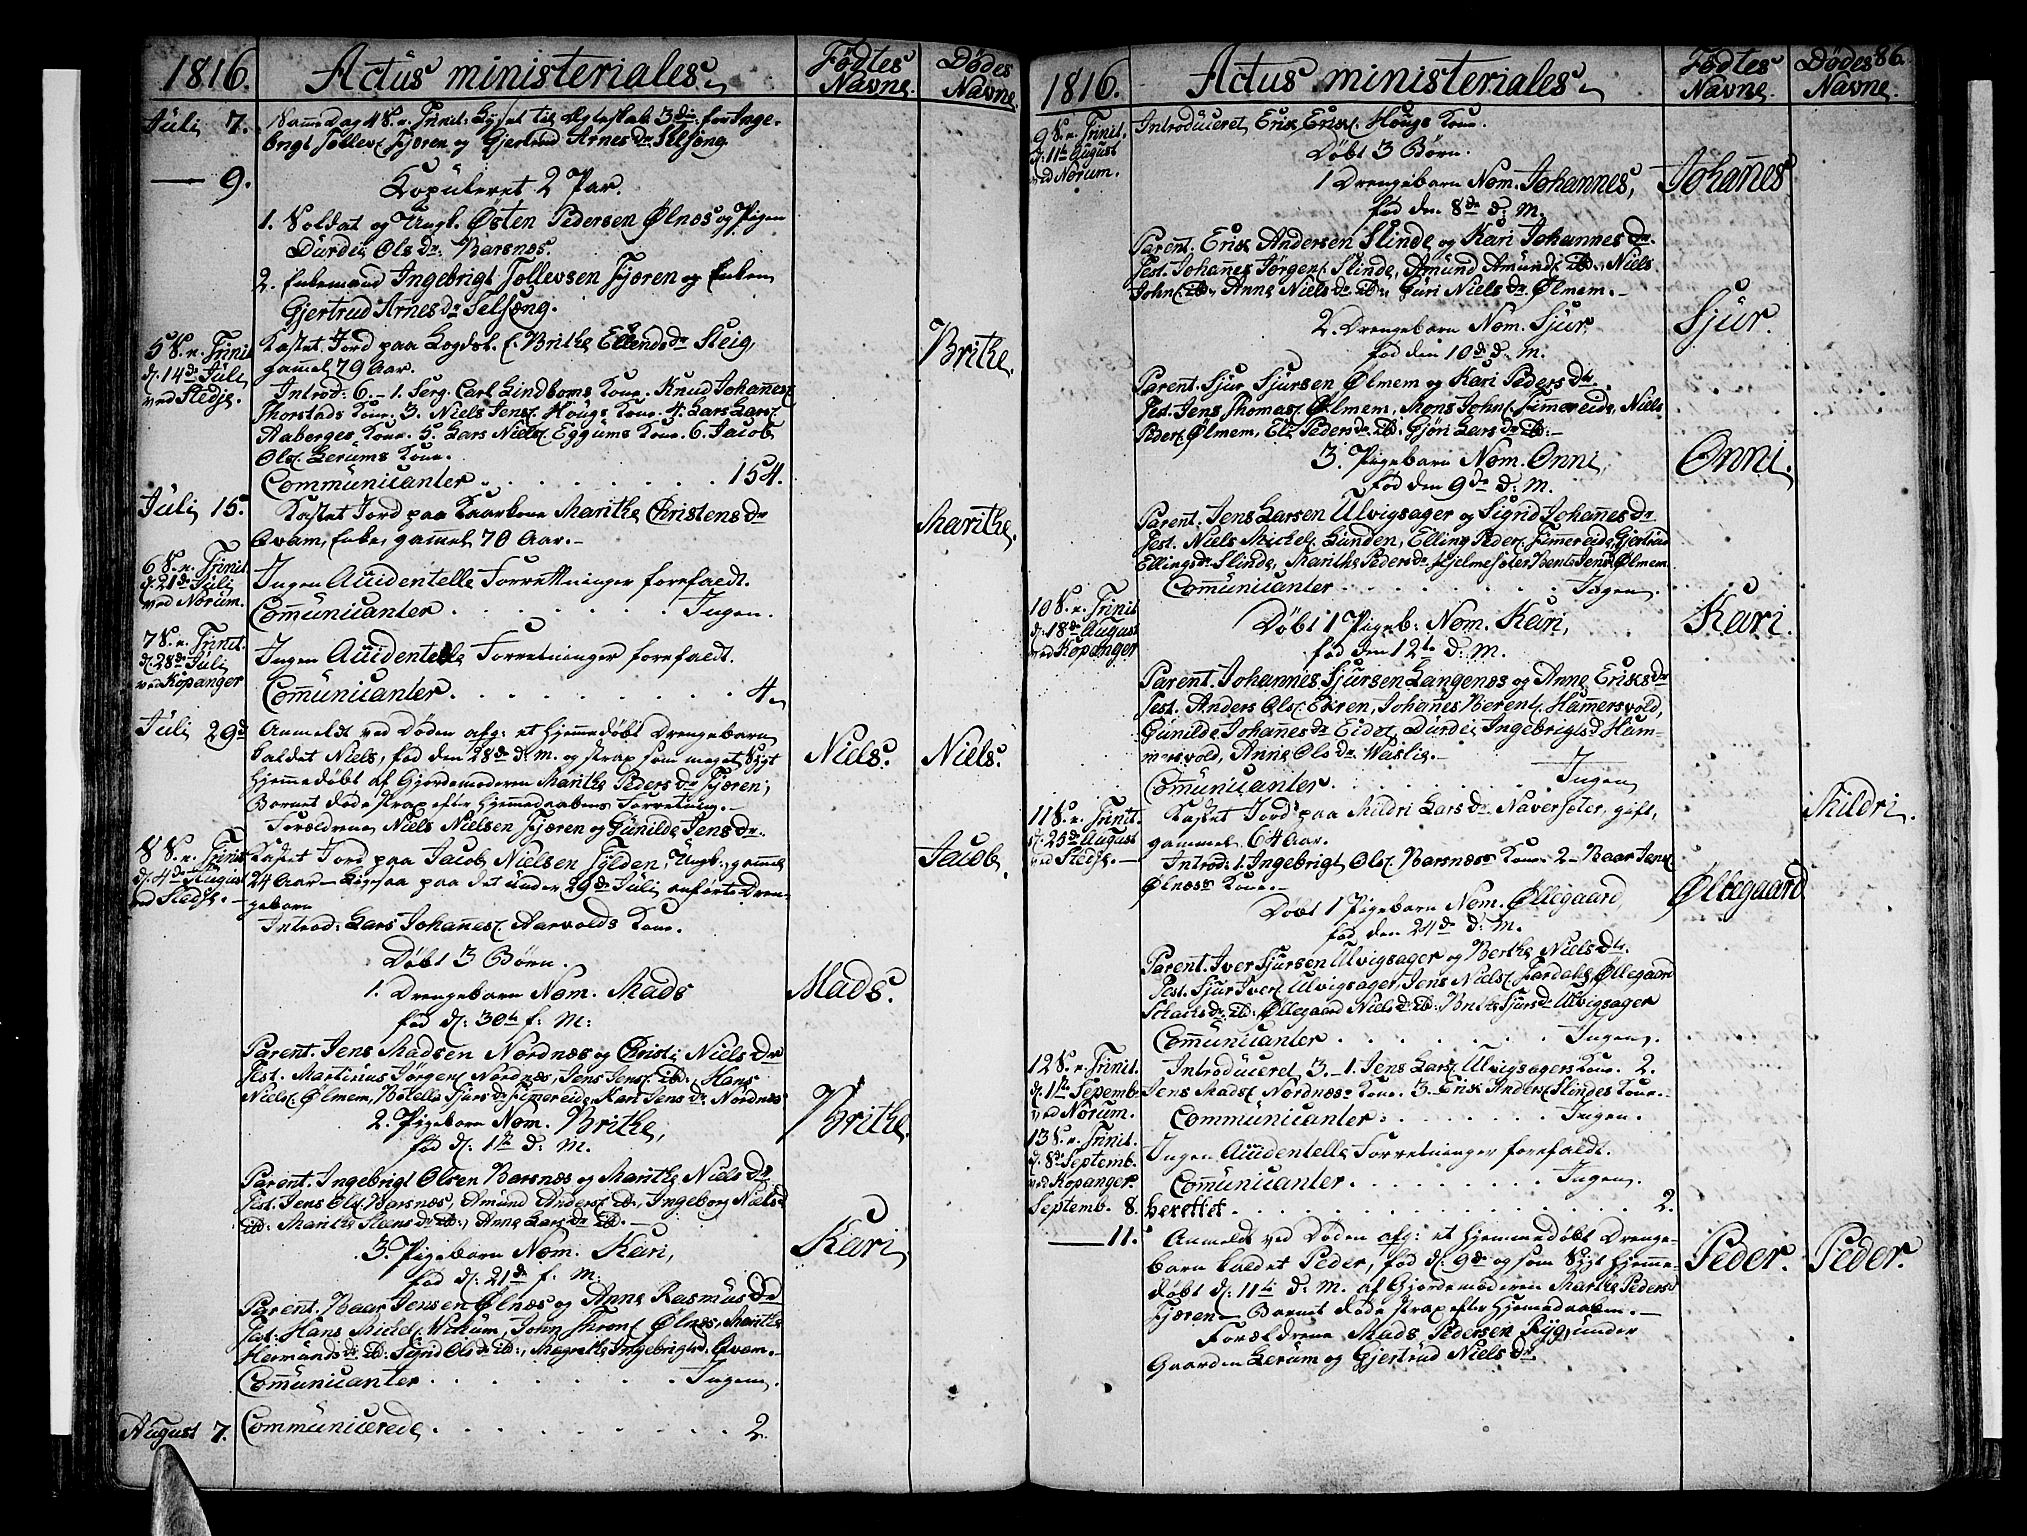 1816. Actus ministeriales Fødtes Navne. Dødes Navne.
Juli 7. Samme Dag 4 S. e. Trinit: Lyset til Ægteskab 3die: for Inge-
brigt Tollevs: Fjæren og Gjertrud Arnesdr Selseng.
— 9. Kopuleret 2 Par.
1. Soldat og Ungk. Østen Pedersen Ølnæs og Pigen
Durdei Olsdr: Barsnæs.
2. Enkemand Ingebrigt Tollevsen Fjæren og Enken
Gjertrud Arnesdr Selseng.
5 S. e. Trinit d: 14de Juli ved Stedje.
Kastet Jord paa Brithe Ellendsdr Steig,
gammel 79 Aar. Brithe.
Introd: 6. – 1. Serg. Carl Lindboms Kone. Knud Johannes:
Thorstads Kone. 3. Niels Jens: Hougs Kone. 4. Lars Lars:
Aaberges Kone. 5. Lars Niels: Eggums Kone. 6. Jacob
Ols: Lerums Kone.
Communicanter . . . 154.
Juli 15. Kastet Jord paa Marithe Christensdr
Qvam, Enke, gammel 70 Aar. – Marithe.
6 S. e. Trinit. d. 21de Juli ved Norum.
Ingen Accidentelle Forrettninger forefaldt.
Communicanter . . . Ingen.
7 S. e. Trinit. d. 28de Juli ved Kopanger
Ingen Accidentelle Forretninger forefaldt.
Communicanter . . . 4
Juli 29de Anmeldt ved Døden afg: et hjemmedøbt Drengebarn
kaldet Niels, fød den 28de d: M. og strax som meget svagt Niels. Niels.
hjemmedøbt af Gjordemoderen Marithe Pedersdr Fjæren;
Barnet døde strax efter Hjemmedaabens Forretning. –
Forældrene Niels Nielsen Fjæren og Gunilde Jensdr.
8 S. e. Trinit d: 4de August ved Stedje. –
Kastet Jord paa Jacob Nielsen Fylden, Ungk: gammel Jacob.
24 Aar – Ligesaa paa det under 29de Juli anførte Dren-
gebarn
Introd: Lars Johannes: Aarvolds Kone.
Døbt 3 Børn.
1. Drengebarn Nom. Mads Mads.
fød d: 30te f: M:
Parent. Jens Madsen Nordnæs og Christi Nielsdr
Test. Martinus Jørgens: Nordnæs, Jens Jens: ib:, Hans
Niels: Ølmem, Botelle Sjursdr Fimereide, Kari Jensdr Nordnæs
2. Pigebarn Nom. Brithe, Brithe.
fød d: 1te d: M.
Parent. Ingebrigt Olsen Barsnæs og Marithe Nielsdr
Test. Jens Ols: Barsnæs, Amund Anders: ib:, Ingeborg Nielsd
ib: Marithe Steensdr ib:, Anne Larsdr ib: –
3. Pigebarn Nom. Kari, Kari
fød d: 21de f: M.
Parent. Baar Jensen Ølnæs og Anne Rasmusdr
Test: Hans Mickels: Wichum, John Throns: Ølnæs, Marithe
Hermundsdr ib: Sigrid Olsdr ib:, Magrethe Ingebrigtsd. Qvam.
Communicanter . . . Ingen.
August 7. Communicerede . . . 2.
1816. Actus ministeriales Fødtes Navne. Dødes Navne. 86.
9 S. e. Trinit. d: 11te August ved Norum.
Introduceret Erik Eriks: Hougs Kone.
Døbt 3 Børn.
1 Drengebarn Nom. Johannes, Johannes
fød den 8de d: M.
Parent. Erik Andersen Slinde og Kari Johannesdr.
Test. Johannes Jørgens: Slinde, Amund Amunds: ib:, Niels
Johns: ib:, Anne Nielsdr ib:, Guri Nielsdr Ølmem. –
2. Drengebarn Nom. Sjur, Sjur.
fød den 10de d: M.
Parent. Sjur Sjursen Ølmem og Kari Pedersdtr.
Test. Jens Thomas: Ølmem, Mons Johns: Fimereide, Niels
Peders: Ølmem, Eli Pedersdr ib: Gjøri Larsdr ib: –
3. Pigebarn Nom. Onni, Onni.
fød den 9de d: M.
Parent. Jens Larsen Ulvigsager og Sigrid Johannesdr
Test. Niels Mickels: Lunden, Elling Peders: Fimmereide, Gjertrud
Ellingsdr Slinde, Marithe Pedersdr Hjelmesæter Bent Jens: Ølmem
Communicanter . . . Ingen.
10 S. e. Trinit d: 18de August ved Kopanger
Døbt 1 Pigeb: Nom. Kari, Kari.
fød den 12te d: M.
Parent. Johannes Sjursen Langenæs og Anne Eriksdr
Test. Anders Ols: Eeren, Johannes Berent: Hammersvold,
Gunilde Johannesdr Eidet, Durdei Ingebrigtsd Ham-
mersvold, Anne Olsdr Waslie. –
Communicanter . . . Ingen
11 S. e. Trinit. d: 25de August ved Stedje. –
Kastet Jord paa Mildri Larsdr Naversæter, gift, Mildri.
gammel 64 Aar.
Introd: 1. Ingebrigt Ols: Barsnæs Kone 2 – Baar Jens:
Ølnæs Kone. –
Døbt 1 Pigebarn Nom. Øllegaard, Øllegaard
fød den 24de d: M.
Parent. Iver Sjursen Ulvigsager og Berthe Nielsdtr.
Test. Sjur Ivers: Ulvigsager, Jens Niels: Fardahl, Øllegaard
Johansdr ib: Øllegaard Nielsdr ib: Brithe Sjursdr Ulvigsager
Communicanter . . . Ingen.
12 S. e. Trinit. d: 1te Septemb. ved Norum.
Introduceret 3. – 1. Jens Lars: Ulvigsagers Kone. 2.
Jens Mads: Nordnæs Kone. 3. Erik Anders: Slindes Kone. –
Communicanter . . . Ingen.
13 S. e. Trinit. d: 8de Septemb. ved Kopanger
Ingen Accidentelle Forretninger forefaldt.
Communicanter . . . Ingen.
Septemb. 8. Berettet . . . 2.
— 11. Anmeldt ved Døden afg: et hjemmedøbt Drenge-
barn kaldet Peder, fød d: 9de og som svagt hjemme- Peder. Peder.
døbt d: 11te d: M. af Gjordemoderen Marithe Pedersd
Fjæren – Barnet døde strax efter Hjemmedaaben. –
Forældrene Mads Pedersen Ryg, under
Gaarden Lerum og Gjertrud Nielsdr